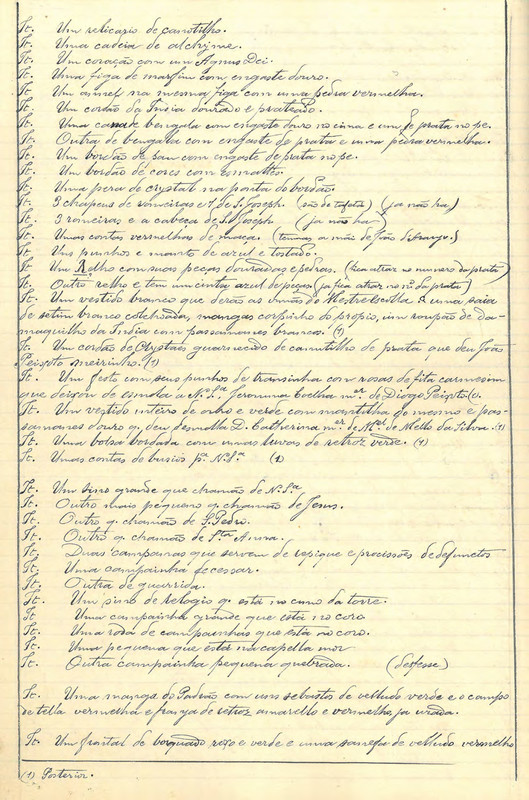 It. Um relicario de canotilho.
It. Uma cadeia de alchyme.
It. Um coração com um Agnus Dei.
It. Uma figa de marfim com engaste douro.
It. Um annel na mesma figa com uma pedra vermelha.
It. Um cordão da India dourado e prateado.
It. Uma cana de bengala com engaste douro no cima e um de prata no pe.
It. Outra de bengala com engaste de prata e uma pedra vermelha.
It. Um bordão de pau com engaste de prata no pe.
It. Um bordão de cores com esmaltes.
It. Uma pera de crystal na ponta do bordão.
It. 3 chapeus de romeiras e 1 de S. Joseph. (são de tafetá) (ja não ha)
It. 3 romeiras e a cabeça de S. Joseph (ja não ha)
It. Umas contas vermelhas de massa. (tem-as a mãe de João d'Araujo.)
It. Uns punhos e manto de azul e tostado.
It. Um Relho com suas peças douradas e pedras. (fica atraz no numero da prata)
It. Outro relho e tem um cinta azul de peças (ja fica atraz no nº da prata)
It. Um vestido branco que derão as irmãs do Mestrescolla & uma saia
de setim branco colchoada, mangas corpinho do propio, um roupão de da-
masquilho da India com passamanes brancos. (1)
It. Um cordão de Chrystaes guarnecido de canutilho de prata que deu João
Peixoto meirinho. (1)
It. Um justo com seus punhos de transinha com rosas de fita carmesim
que deixou de esmola a N. Sª Jeronima Coelha mer. de Diogo Peixoto
It. Um vestido inteiro de ouro e verde com mantilha do mesmo e pas-
samanes douro q. deu desmolla D. Catherina mer. de Mel. de Mello da Silva. (1)
It. Uma bolsa bordada com umas luvas de retroz verde. (1)
It. Umas contas de busios pª Nª Sª (1)
It. Um sino grande que chamão de Nª Sª
It. Outro mais pequeno q. chamão de Jesus.
It. Outro q. chamão de S. Pedro.
It. Outro q. chamão de Sta Anna.
It. Duas campanas que servem de repique e procissões de defunctos
It. Uma campainha de cessar.
It. Outra de guarrida.
It. Um sino de relogio q. está no cimo da torre.
It. Uma campainha grande que está no coro
It. Uma roda de campainhas que está no coro.
It. Uma pequena que está na capella mor
It. Outra campainha pequena quebrada. (desfesse)
It. Uma manga do Padrão com uns sebastos de velludo verde e o campo
de tella vermelha e franja de retroz amarello e vermelho, ja usada.
It. Um frontal de borquado roxo e verde e uma sanefa de velludo vermelho
(1) Posterior.